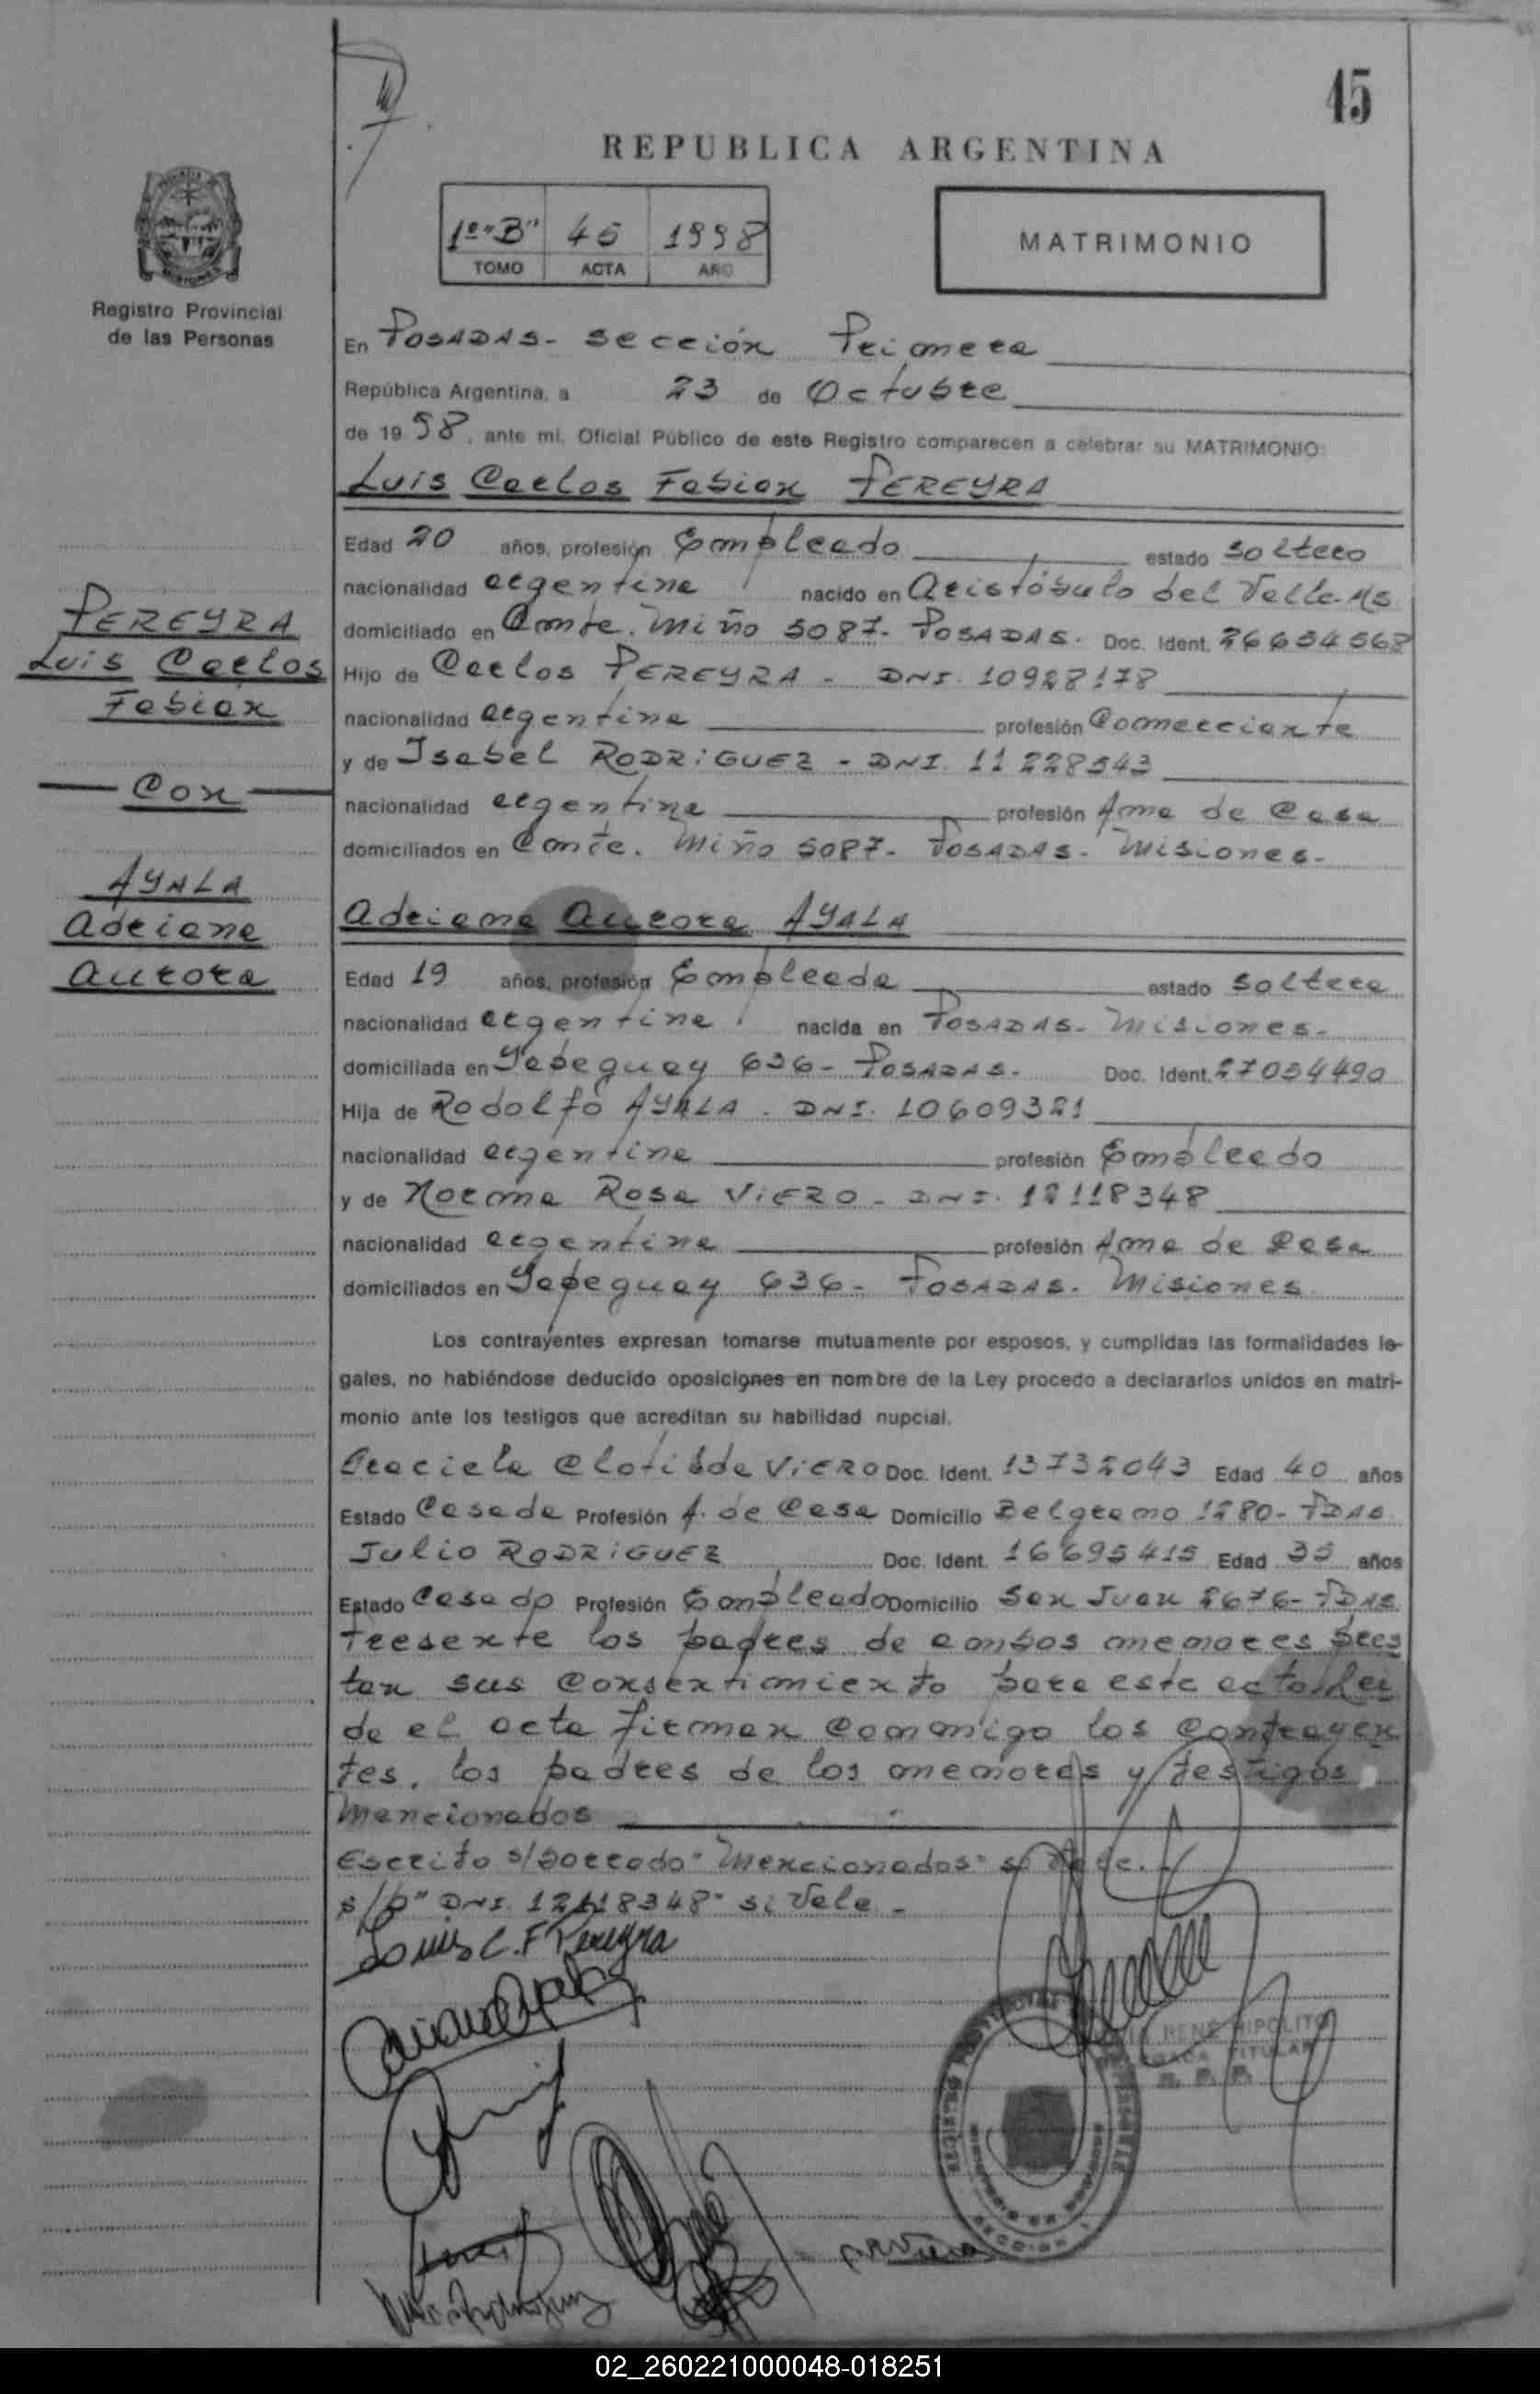 45
REPUBLICA ARGENTINA
1º "B" 45 1998
TOMO ACTA AÑO
MATRIMONIO
Registro Provincial
de las Personas
En POSADAS - Sección Primera
República Argentina, a 23 de Octubre
de 1998, ante mi, Oficial Público de este Registro comparecen a celebrar su MATRIMONIO:
Luis Carlos Fabian PEREYRA
Edad 20 años, profesión Empleado estado Soltero
nacionalidad argentina nacido en Aristóbulo del Valle - Ms
domiciliado en Comte. Miño 5087 - POSADAS. Doc. Ident. 26654568
Hijo de Carlos PEREYRA - DNI. 10928178
nacionalidad argentina profesión Comerciante
y de Isabel RODRIGUEZ - DNI. 11228543
nacionalidad argentina profesión Ama de Casa
domiciliados en Comte. Miño 5087 - POSADAS - Misiones -
PEREYRA
Luis Carlos
Fabian
Con
AYALA
Adriana
Aurora
Adriana Aurora AYALA
Edad 19 años, profesión Empleada estado Soltera
nacionalidad argentina nacida en POSADAS - Misiones -
domiciliada en Yapeguay 636 - POSADAS - Doc. Ident. 27054490
Hija de Rodolfo AYALA - DNI. 10609321
nacionalidad argentina profesión Empleado
y de Norma Rosa VIERO - DNI. 12118348
nacionalidad argentina profesión Ama de Casa
domiciliados en Yapeguay 636 - POSADAS - Misiones
Los contrayentes expresan tomarse mutuamente por esposos, y cumplidas las formalidades le-
gales, no habiéndose deducido oposiciones en nombre de la Ley procedo a declararlos unidos en matri-
monio ante los testigos que acreditan su habilidad nupcial.
Graciela Clotilde VIERO Doc. Ident. 13732043 Edad 40 años
Estado Casada Profesión A. de Casa Domicilio Belgrano 1280 - PDAS
Julio RODRIGUEZ Doc. Ident. 16695415 Edad 35 años
Estado Casado Profesión Empleado Domicilio San Juan 2676 - PDAS
Presente los padres de ambos menores pres
tan sus consentimiento para este acto. Lei
da el acta firman conmigo los contrayen
tes, los padres de los menores y testigos
mencionados
Escrito s/borrado "Mencionados" si Vale. -
s/b" DNI. 12118348" si Vale -
Luis C. F Pereyra
RENE HIPOLITO
TITULAR
R. P. P.
02_260221000048-018251